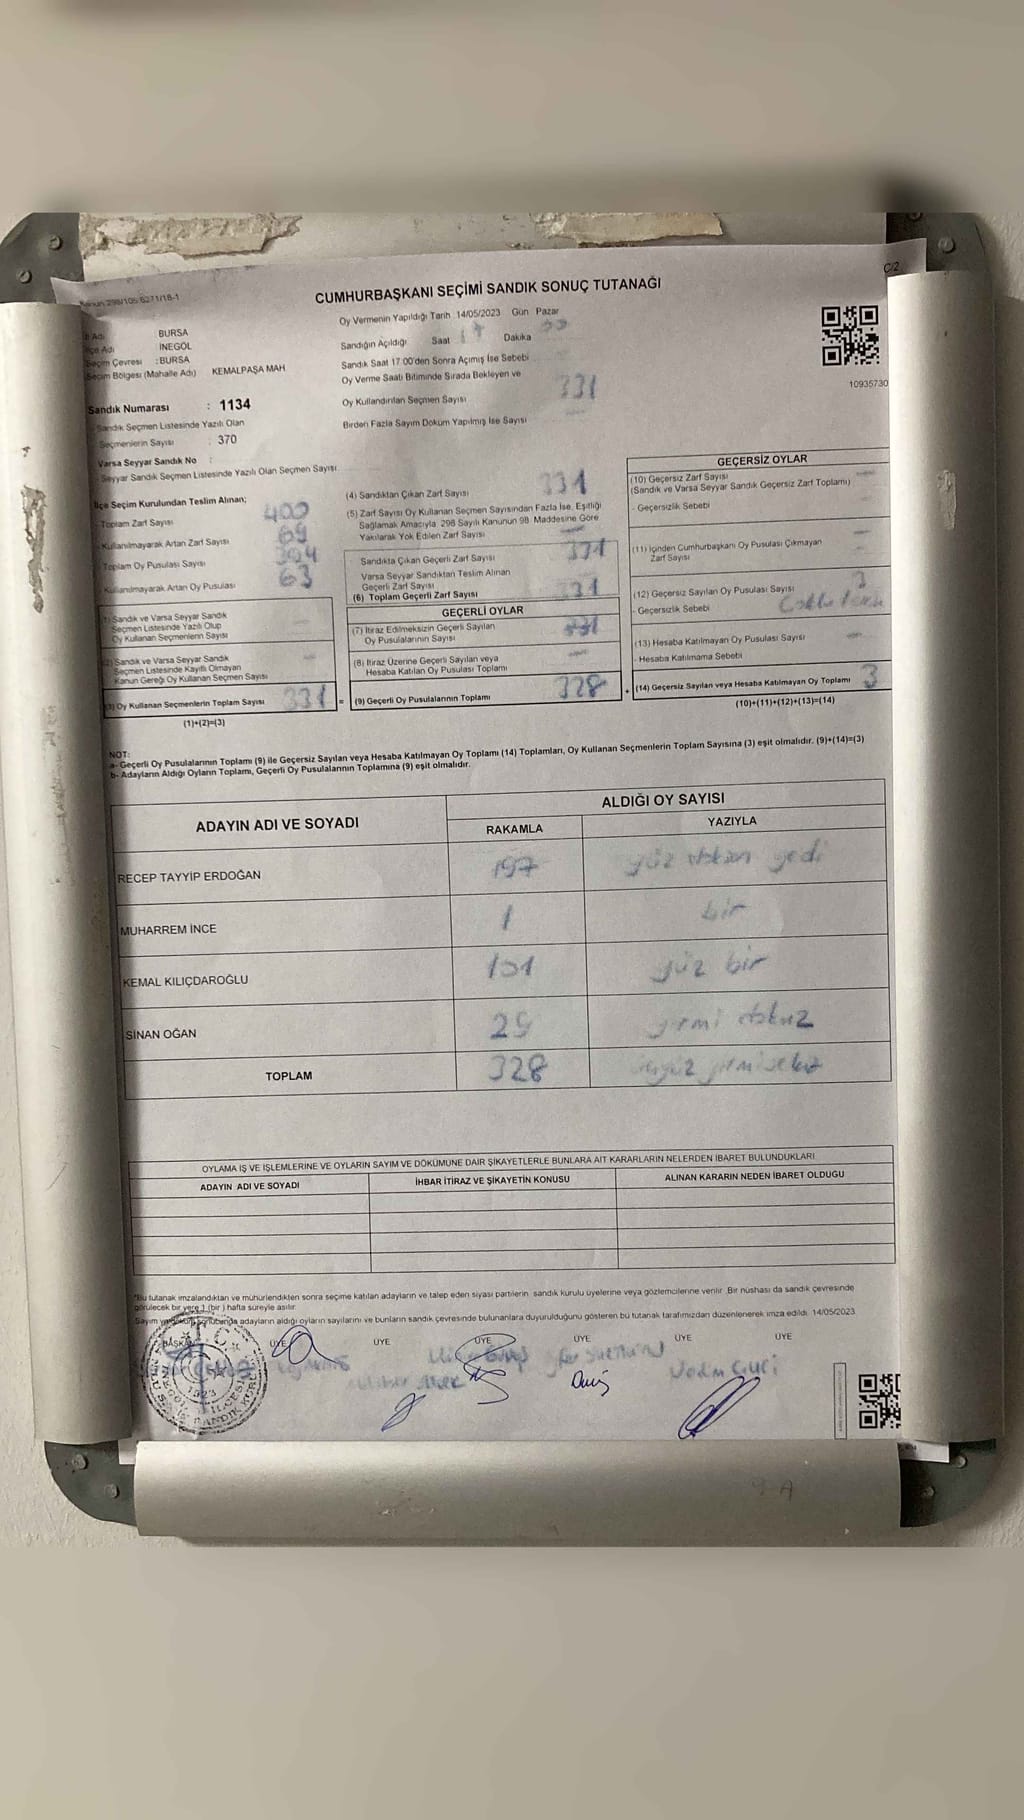 Kanun 298/105 6271/18-1
C/2
CUMHURBAŞKANI SEÇİMİ SANDIK SONUÇ TUTANAĞI
İl Adı BURSA
İlçe Adı İNEGÖL
Seçim Çevresi : BURSA
Seçim Bölgesi (Mahalle Adı) KEMALPAŞA MAH
Sandık Numarası : 1134
Sandık Seçmen Listesinde Yazılı Olan
Seçmenlerin Sayısı : 370
Varsa Seyyar Sandık No :
Seyyar Sandık Seçmen Listesinde Yazılı Olan Seçmen Sayısı
Oy Vermenin Yapıldığı Tarih 14/05/2023 Gün Pazar
Sandığın Açıldığı Saat 17 Dakika
Sandık Saat 17:00'den Sonra Açımış İse Sebebi
Oy Verme Saati Bitiminde Sırada Bekleyen ve
Oy Kullandırılan Seçmen Sayısı 331
Birden Fazla Sayım Döküm Yapılmış İse Sayısı
10935730
İlçe Seçim Kurulundan Teslim Alınan;
Toplam Zarf Sayısı 400
Kullanılmayarak Artan Zarf Sayısı 69
Toplam Oy Pusulası Sayısı 394
Kullanılmayarak Artan Oy Pusulası 63
1) Sandık ve Varsa Seyyar Sandık
Seçmen Listesinde Yazılı Olup
Oy Kullanan Seçmenlerin Sayısı
(2) Sandık ve Varsa Seyyar Sandık
Seçmen Listesinde Kayıtlı Olmayan
Kanun Gereği Oy Kullanan Seçmen Sayısı
(3) Oy Kullanan Seçmenlerin Toplam Sayısı 331
(1)+(2)=(3)
(4) Sandıktan Çıkan Zarf Sayısı 331
(5) Zarf Sayısı Oy Kullanan Seçmen Sayısından Fazla İse, Eşitliği
Sağlamak Amacıyla 298 Sayılı Kanunun 98. Maddesine Göre
Yakılarak Yok Edilen Zarf Sayısı
Sandıkta Çıkan Geçerli Zarf Sayısı 331
Varsa Seyyar Sandıktan Teslim Alınan
Geçerli Zarf Sayısı
(6) Toplam Geçerli Zarf Sayısı 331
GEÇERLİ OYLAR
(7) İtiraz Edilmeksizin Geçerli Sayılan
Oy Pusulalarının Sayısı
(8) İtiraz Üzerine Geçerli Sayılan veya
Hesaba Katılan Oy Pusulası Toplamı
= (9) Geçerli Oy Pusulalarının Toplamı 328
GEÇERSİZ OYLAR
(10) Geçersiz Zarf Sayısı
(Sandık ve Varsa Seyyar Sandık Geçersiz Zarf Toplamı)
- Geçersizlik Sebebi
(11) İçinden Cumhurbaşkanı Oy Pusulası Çıkmayan
Zarf Sayısı
(12) Geçersiz Sayılan Oy Pusulası Sayısı 3
- Geçersizlik Sebebi
(13) Hesaba Katılmayan Oy Pusulası Sayısı
- Hesaba Katılmama Sebebi
+ (14) Geçersiz Sayılan veya Hesaba Katılmayan Oy Toplamı 3
(10)+(11)+(12)+(13)=(14)
NOT:
a- Geçerli Oy Pusulalarının Toplamı (9) ile Geçersiz Sayılan veya Hesaba Katılmayan Oy Toplamı (14) Toplamları, Oy Kullanan Seçmenlerin Toplam Sayısına (3) eşit olmalıdır. (9)+(14)=(3)
b- Adayların Aldığı Oyların Toplamı, Geçerli Oy Pusulalarının Toplamına (9) eşit olmalıdır.
ADAYIN ADI VE SOYADI
ALDIĞI OY SAYISI
RAKAMLA YAZIYLA
RECEP TAYYİP ERDOĞAN 197 yüz doksan yedi
MUHARREM İNCE 1 bir
KEMAL KILIÇDAROĞLU 101 yüz bir
SİNAN OĞAN 29 yirmi dokuz
TOPLAM 328 üçyüz yirmisekiz
OYLAMA İŞ VE İŞLEMLERİNE VE OYLARIN SAYIM VE DÖKÜMÜNE DAİR ŞİKAYETLERLE BUNLARA AİT KARARLARIN NELERDEN İBARET BULUNDUKLARI
ADAYIN ADI VE SOYADI İHBAR İTİRAZ VE ŞİKAYETİN KONUSU ALINAN KARARIN NEDEN İBARET OLDUGU
*Bu tutanak imzalandıktan ve mühürlendikten sonra seçime katılan adayların ve talep eden siyasi partilerin sandık kurulu üyelerine veya gözlemcilerine verilir. Bir nüshası da sandık çevresinde
görülecek bir yere 1 (bir) hafta süreyle asılır.
Sayım ve döküm sonucunda adayların aldığı oyların sayılarını ve bunların sandık çevresinde bulunanlara duyurulduğunu gösteren bu tutanak tarafımızdan düzenlenerek imza edildi. 14/05/2023
BAŞKAN ÜYE ÜYE ÜYE ÜYE ÜYE ÜYE
T.C.
1923
9-A